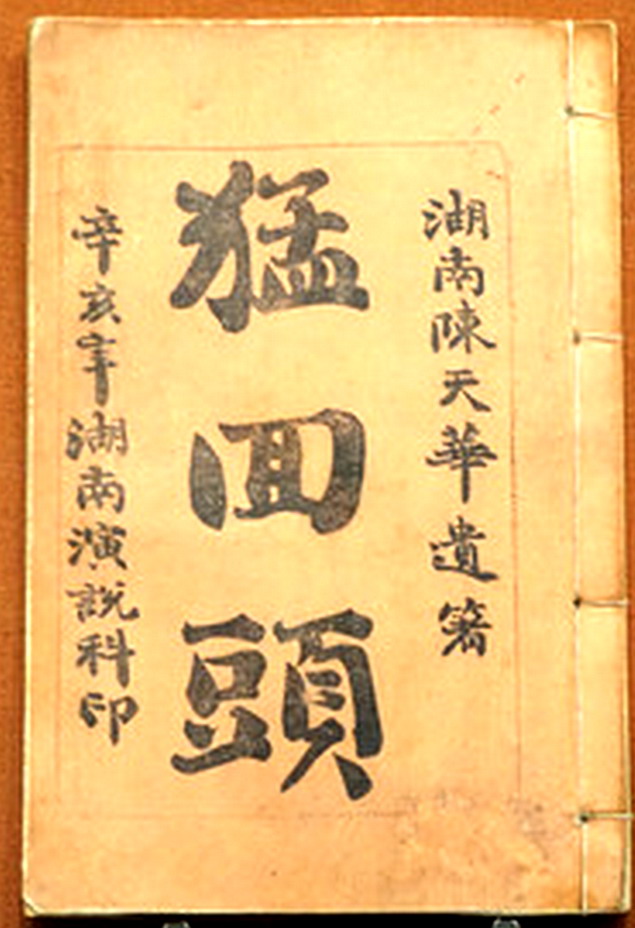 湖南陳天華遺箸
猛回頭
辛亥年湖南演説科印